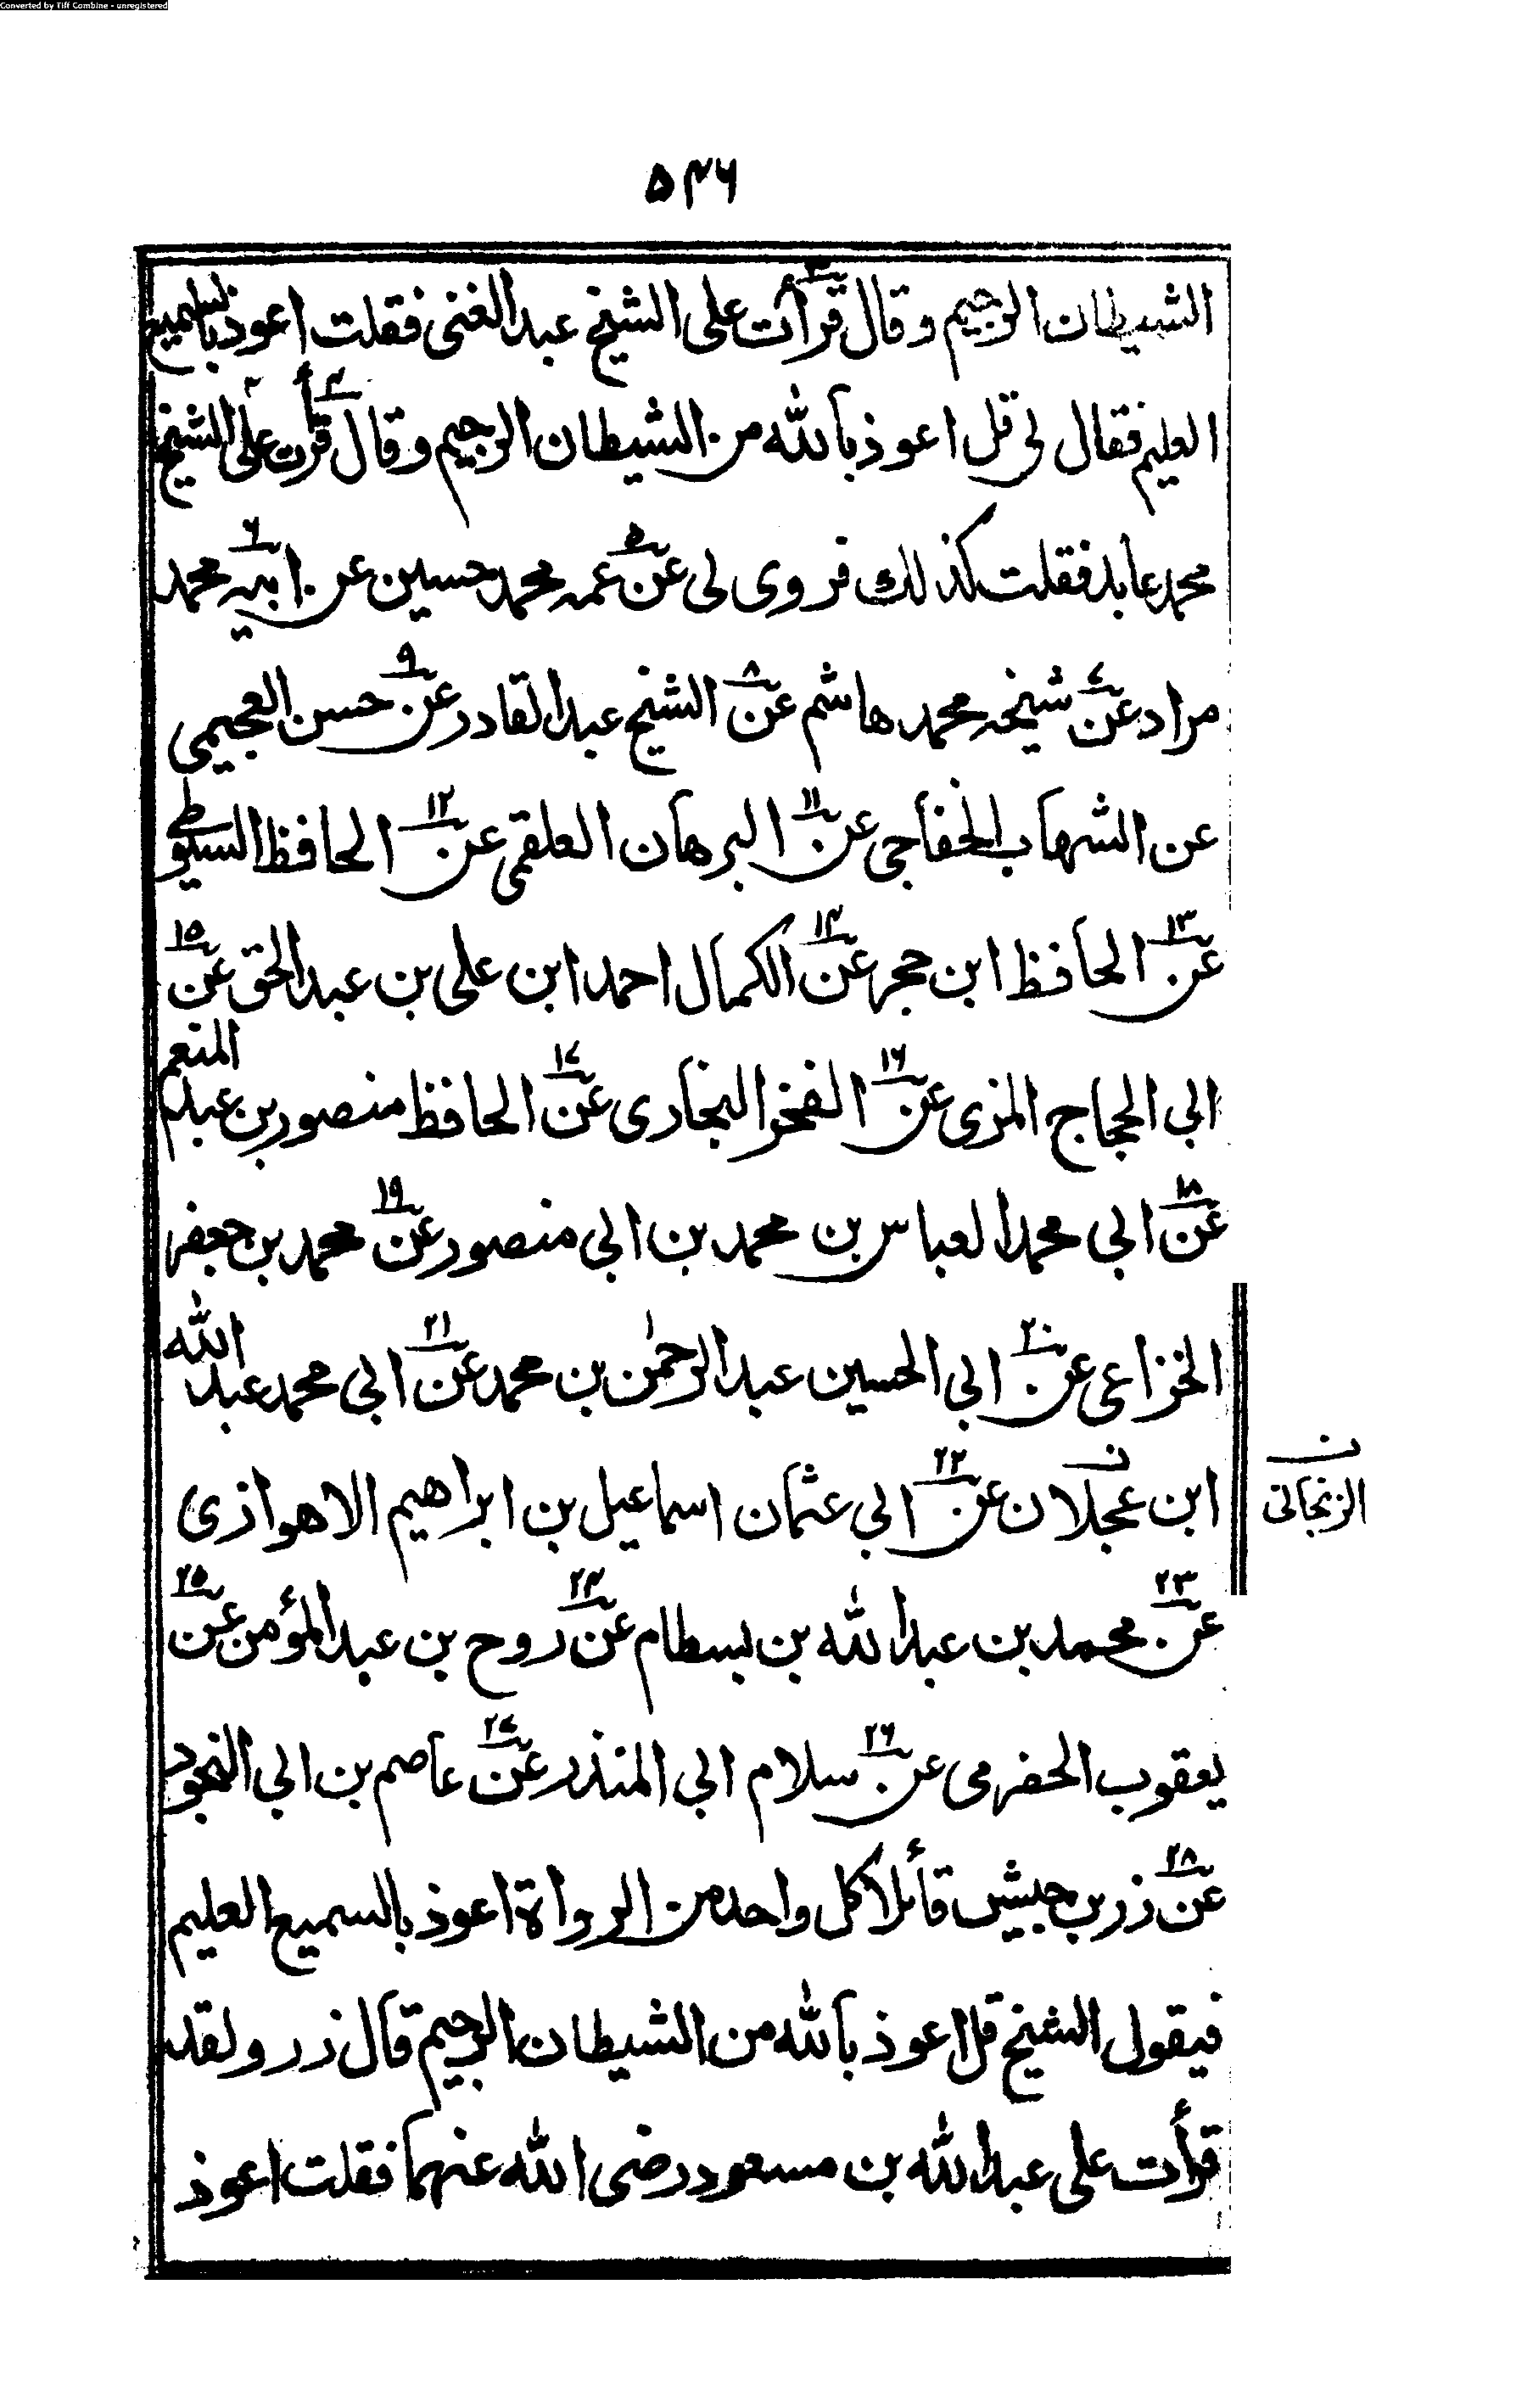 Converted by Tiff Combine - unregistered
۵۴۶
الشیطان الرجیم وقال قرأت علی الشیخ عبد الغنی فقلت اعوذ بالسمیع
العلیم فقال لی قل اعوذ بالله من الشیطان الرجیم وقال قرأت علی الشیخ
محمد عابد فقلت کذلک فروی لی عن عمہ محمد حسین عن ابیہ محمد
مراد عن شیخہ محمد ھاشم عن الشیخ عبد القادر عن حسن العجیمی
عن الشھاب الخفاجی عن البرھان العلقمی عن الحافظ السیوطی
عن الحافظ ابن حجر عن الکمال احمد ابن علی بن عبد الحق عن
ابی الحجاج المزی عن الفخر البخاری عن الحافظ منصور بن عبد المنعم
عن ابی محمد العباس بن محمد بن ابی منصور عن محمد بن جعفر
الخزاعی عن ابی الحسین عبد الرحمٰن بن محمد عن ابی محمد عبد الله
ابن عجلان عن ابی عثمان اسماعیل بن ابراھیم الاھوازی
ن الزنجانی
عن محمد بن عبد الله بن بسطام عن روح بن عبد المؤمن عن
یعقوب الحضرمی عن سلام ابی المنذر عن عاصم بن ابی النجود
عن زر بن حبیش قائلا کل واحد من الرواة اعوذ بالسمیع العلیم
فیقول الشیخ قل اعوذ بالله من الشیطان الرجیم قال زر ولقد
قرأت علی عبد الله بن مسعود رضی الله عنهما فقلت اعوذ